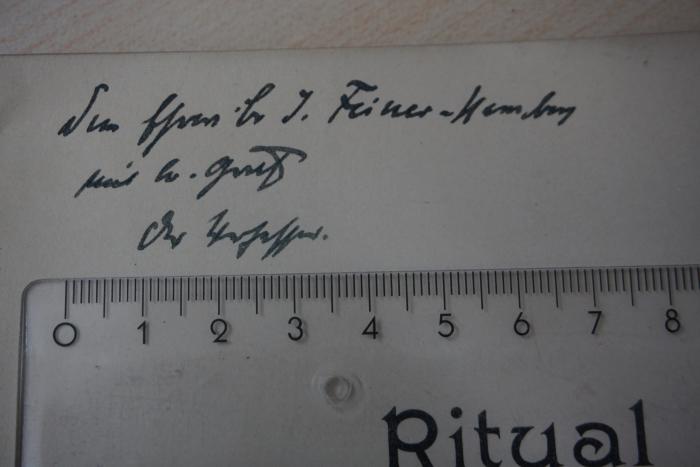 Dem Ehren br J. Feiner-Hamburg
mit br. Gruß
Der Verfasser.
0 1 2 3 4 5 6 7 8
Ritual